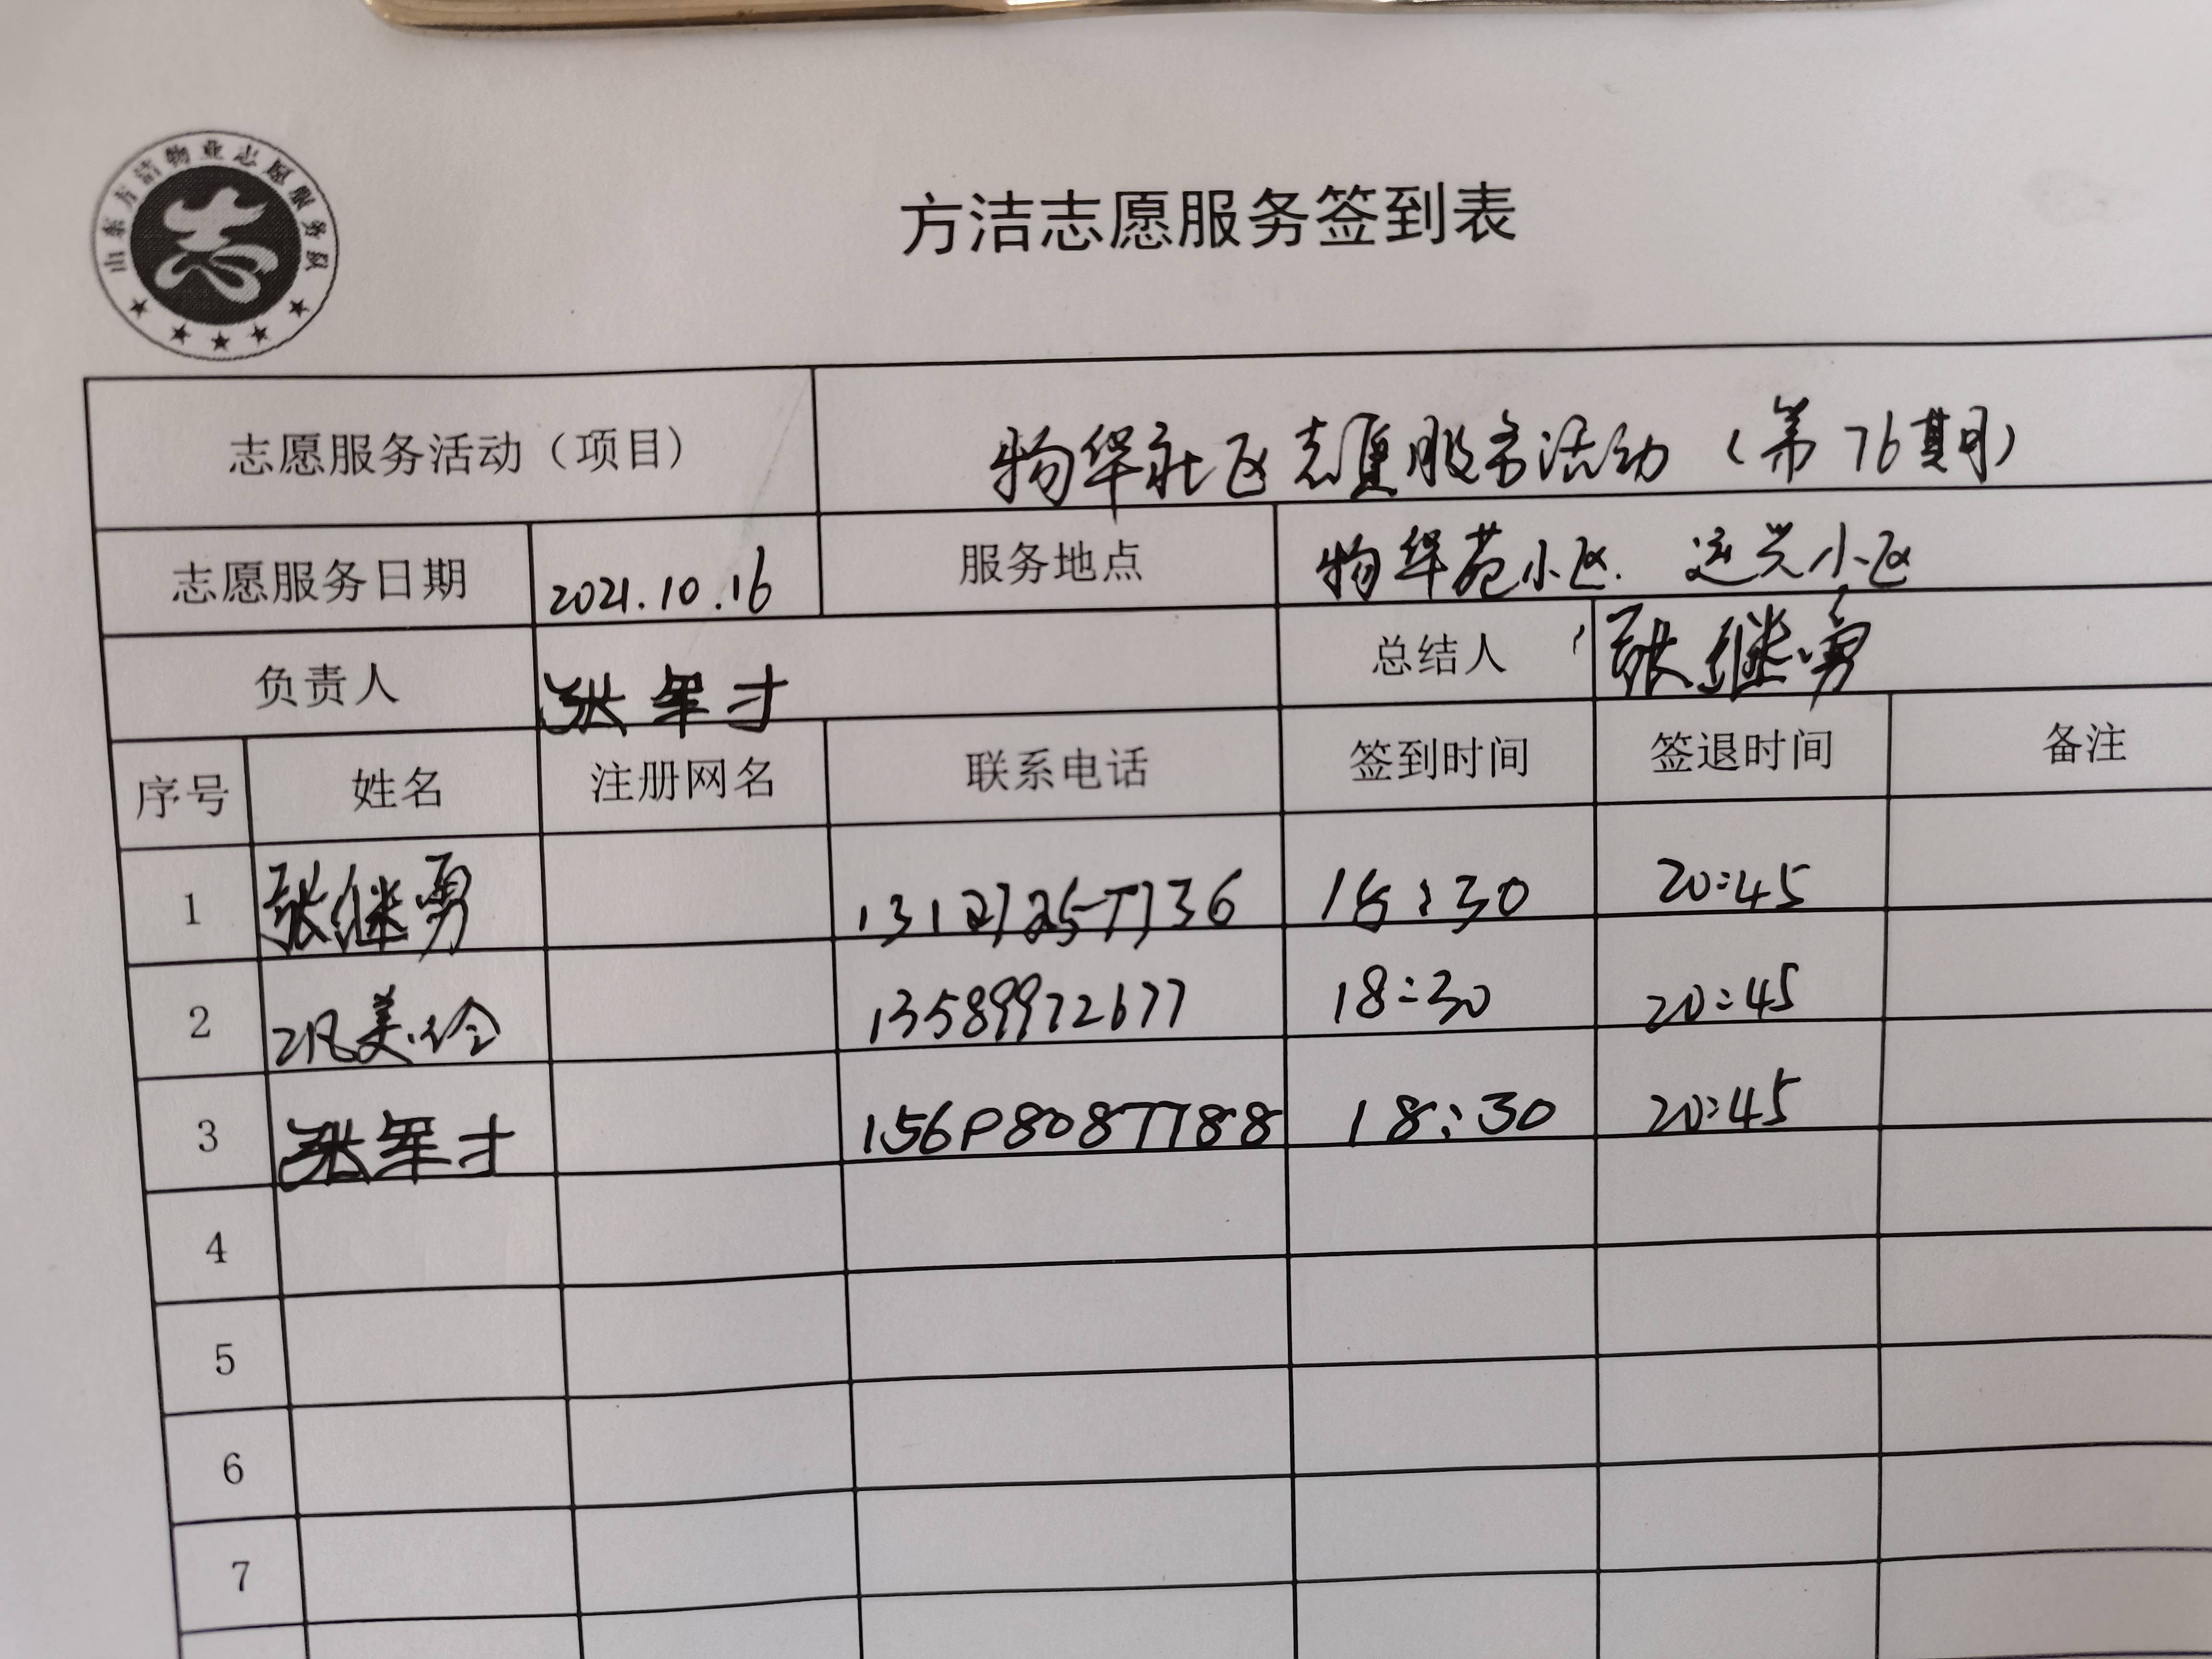 山东方洁物业志愿服务队
方洁志愿服务签到表
志愿服务活动（项目） 物华社区志愿服务活动（第76期）
志愿服务日期 2021.10.16 服务地点 物华苑小区. 运兴小区
负责人 张军才 总结人 张继勇
序号 姓名 注册网名 联系电话 签到时间 签退时间 备注
1 张继勇 18:30 20:45
2 13589972677 18:30 20:45
3 张军才 156 18:30 20:45
4
5
6
7